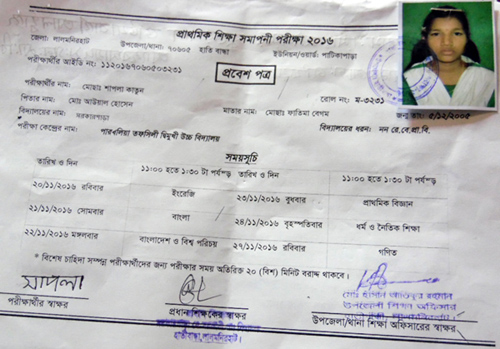 প্রাথমিক শিক্ষা সমাপনী পরীক্ষা ২০১৬
জেলা: লালমনিরহাট উপজেলা/থানা: ৭০৬০৫ হাতি বান্ধা ইউনিয়ন/ওয়ার্ড: পাটিকাপাড়া
পরীক্ষার্থীর আইডি নং: ১১২০১৬৭০৬০৫০৩২৩১
প্রবেশ পত্র
পরীক্ষার্থীর নাম: মোছাঃ শাপলা কাতুন রোল নং: ম-৩২৩১
পিতার নাম: মোঃ আউয়াল হোসেন মাতার নাম: মোছাঃ ফাতিমা বেগম জন্ম তাং: ৫/১২/২০০৫
বিদ্যালয়ের নাম: সরকারপাড়া বিদ্যালয়ের ধরন: নন রে.বে.প্রা.বি.
পরীক্ষা কেন্দ্রের নাম: পারুলিয়া তফসিলী দ্বিমুখী উচ্চ বিদ্যালয়
সময়সূচি
তারিখ ও দিন ১১:০০ হতে ১:৩০ টা পর্যন্ড় তারিখ ও দিন ১১:০০ হতে ১:৩০ টা পর্যন্ড়
২০/১১/২০১৬ রবিবার ইংরেজি ২৩/১১/২০১৬ বুধবার প্রাথমিক বিজ্ঞান
২১/১১/২০১৬ সোমবার বাংলা ২৪/১১/২০১৬ বৃহস্পতিবার ধর্ম ও নৈতিক শিক্ষা
২২/১১/২০১৬ মঙ্গলবার বাংলাদেশ ও বিশ্ব পরিচয় ২৭/১১/২০১৬ রবিবার গণিত
* বিশেষ চাহিদা সম্পন্ন পরীক্ষার্থীদের জন্য পরীক্ষার সময় অতিরিক্ত ২০ (বিশ) মিনিট বরাদ্দ থাকবে।
সাপলা
পরীক্ষার্থীর স্বাক্ষর
প্রধানশিক্ষকের স্বাক্ষর
হাতীবান্ধা, লালমনিরহাট।
উপজেলা শিক্ষা অফিসার
উপজেলা/থানা শিক্ষা অফিসারের স্বাক্ষর